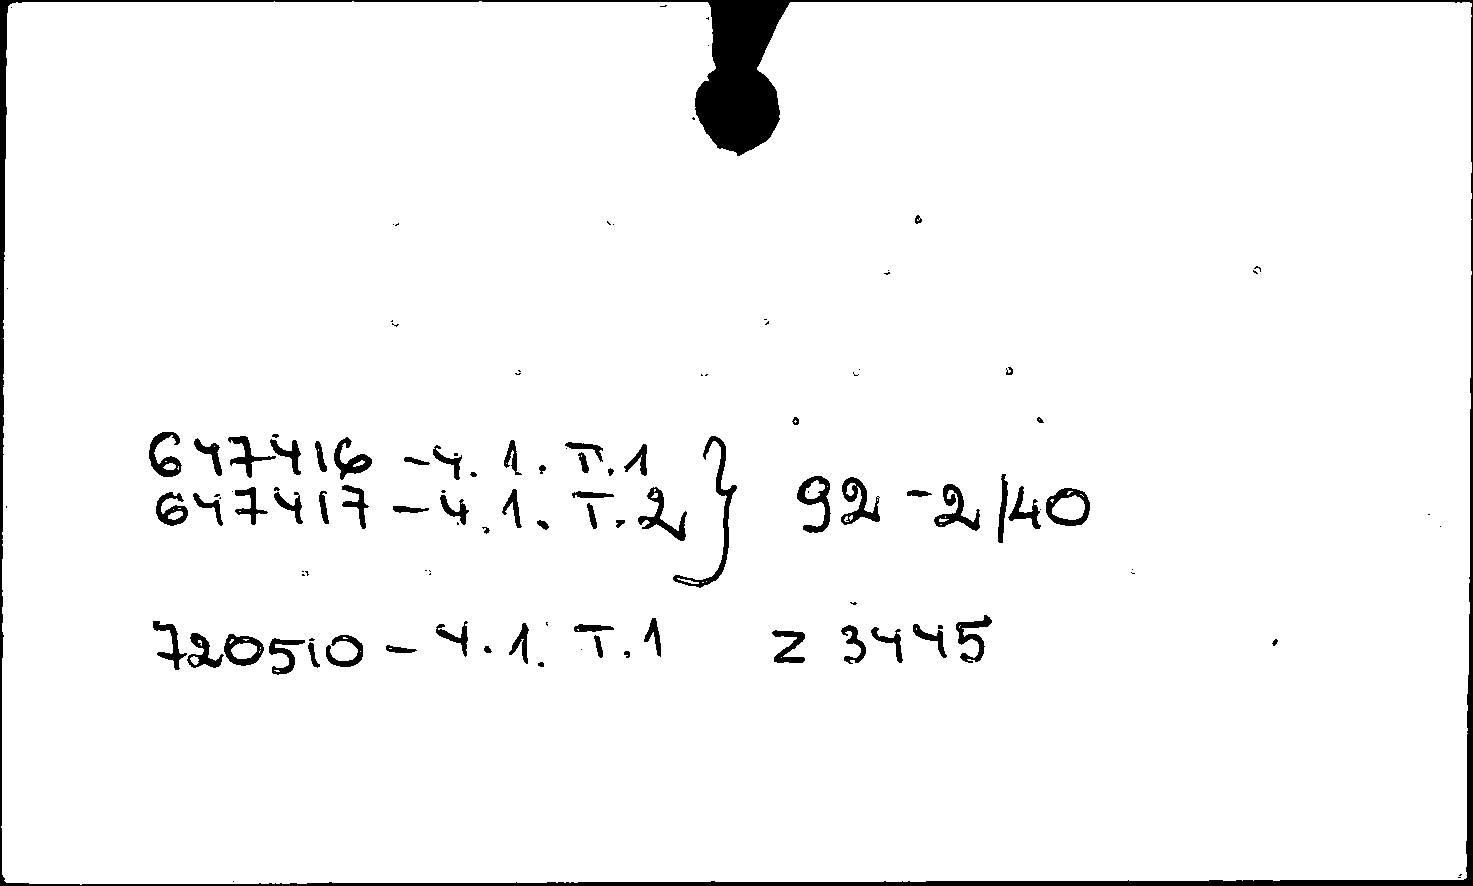 647416 - ч. 1. Т. 1 } 92 - 2/40
647417 - ч. 1. Т. 2
720510 - ч. 1. Т. 1 Z 3445